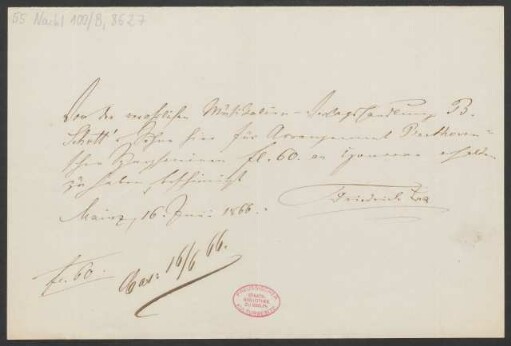 55 Nachl 100/B, 3527
Von der Musikalien-Verlagshandlung B.
Schott's Söhne hier für Arrangement Beethoven-
scher fl. 60. erhalten
zu haben bescheinigt
Mainz, 16. Juni 1866.
Friedrich Lux
fl. 60.
16/6 66.
STAATS-
BIBLIOTHEK